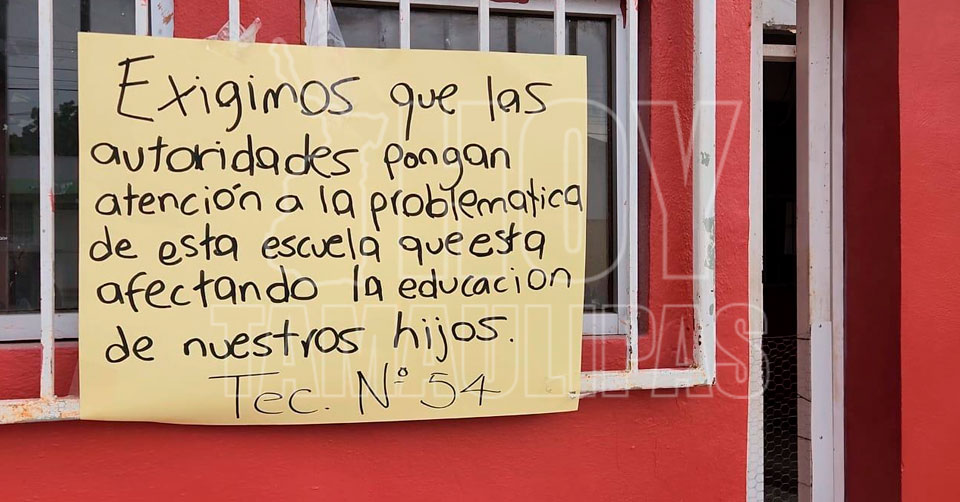 Exigimos que las
autoridades pongan
atención a la problematica
de esta escuela que esta
afectando la educacion
de nuestros hijos.
Tec. N° 54
HOY
TAMAULIPAS